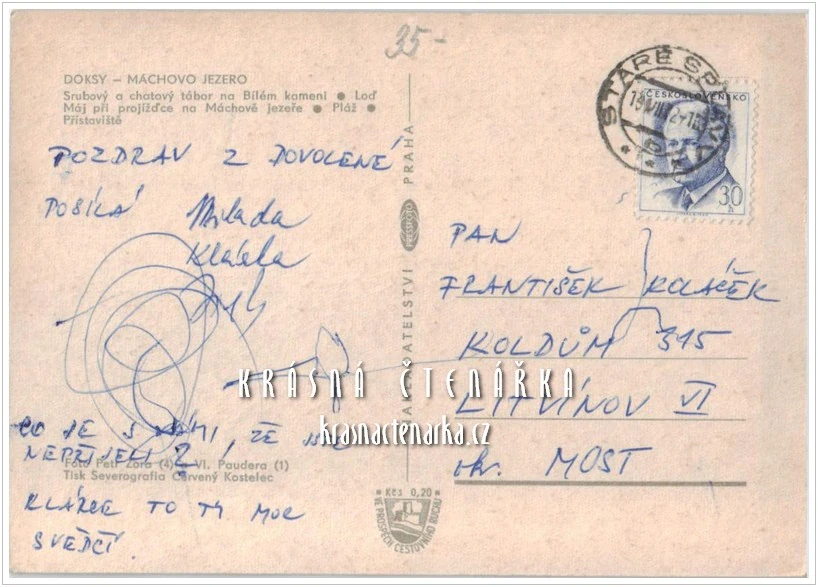 35-
DOKSY – MÁCHOVO JEZERO
Srubový a chatový tábor na Bílém kameni ● Loď
Máj při projížďce na Máchově jezeře ● Pláž ●
Přístaviště
POZDRAV Z DOVOLENÉ
POSÍLÁ Milada
Klárka
CO JE S VÁMI, ŽE
NEPŘIJELI ?
Foto Petr Zora (4) VI. Paudera (1)
Tisk Severografia Červený Kostelec
KLÁRCE TO TY MOC
SVĚDČÍ
NAKLADATELSTVÍ PRESSFOTO PRAHA
Kčs 0,20
VE PROSPĚCH CESTOVNÍHO RUCHU
STARÉ
ČESKOSLOVENSKO
30
h
PAN
FRANTIŠEK KOLÁČEK
KOLDŮM 315
LITVÍNOV VI
okr. MOST
KRÁSNÁ ČTENÁŘKA
krasnactenarka.cz